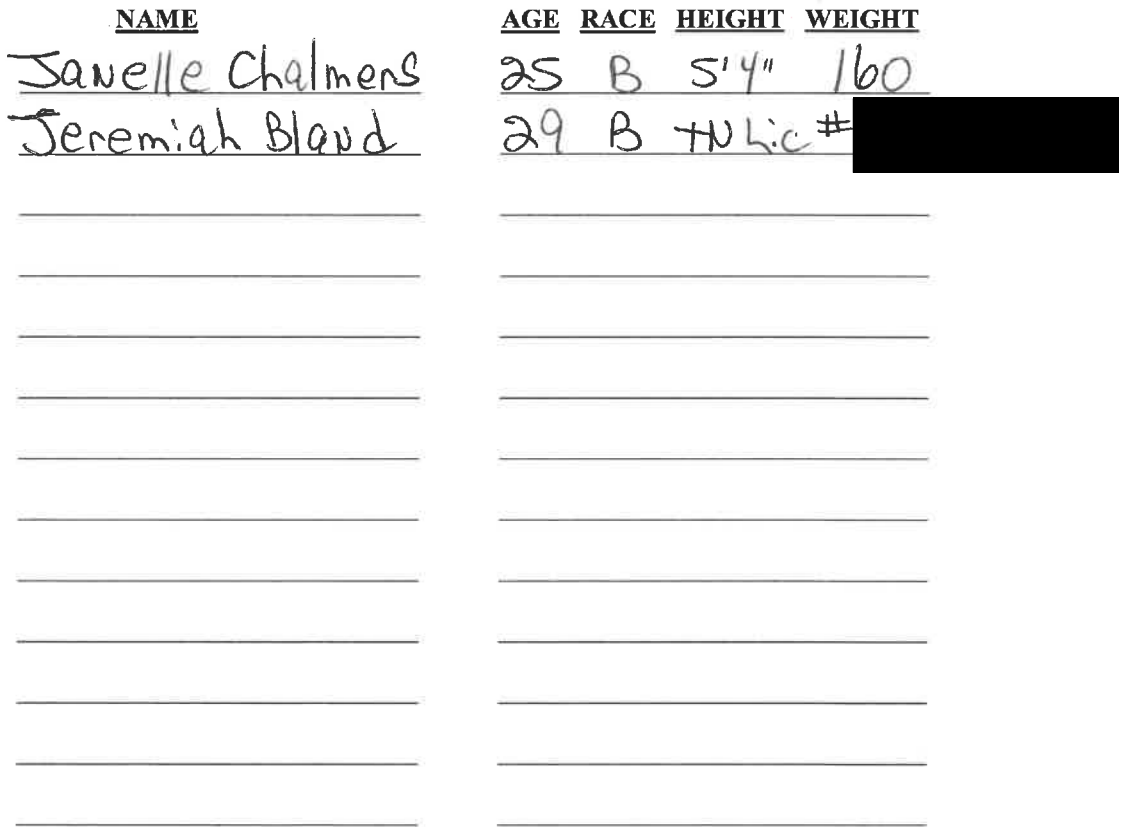 NAME AGE RACE HEIGHT WEIGHT
Janelle Chalmers 25 B 5'4" 160
Jeremiah Bland 29 B TN Lic #